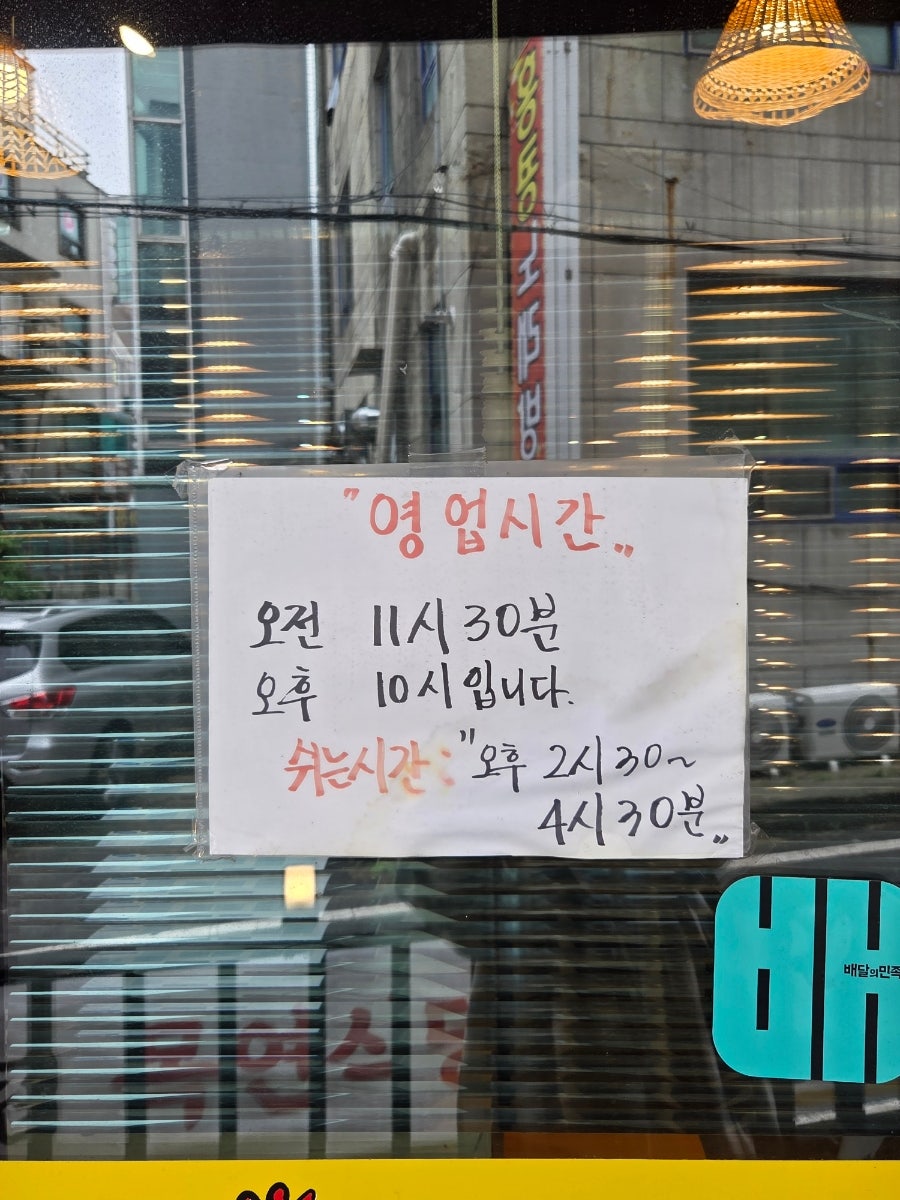 "영업시간"
오전 11시 30분
오후 10시입니다.
쉬는시간: "오후 2시 30~
4시 30분"
배
배달의민족